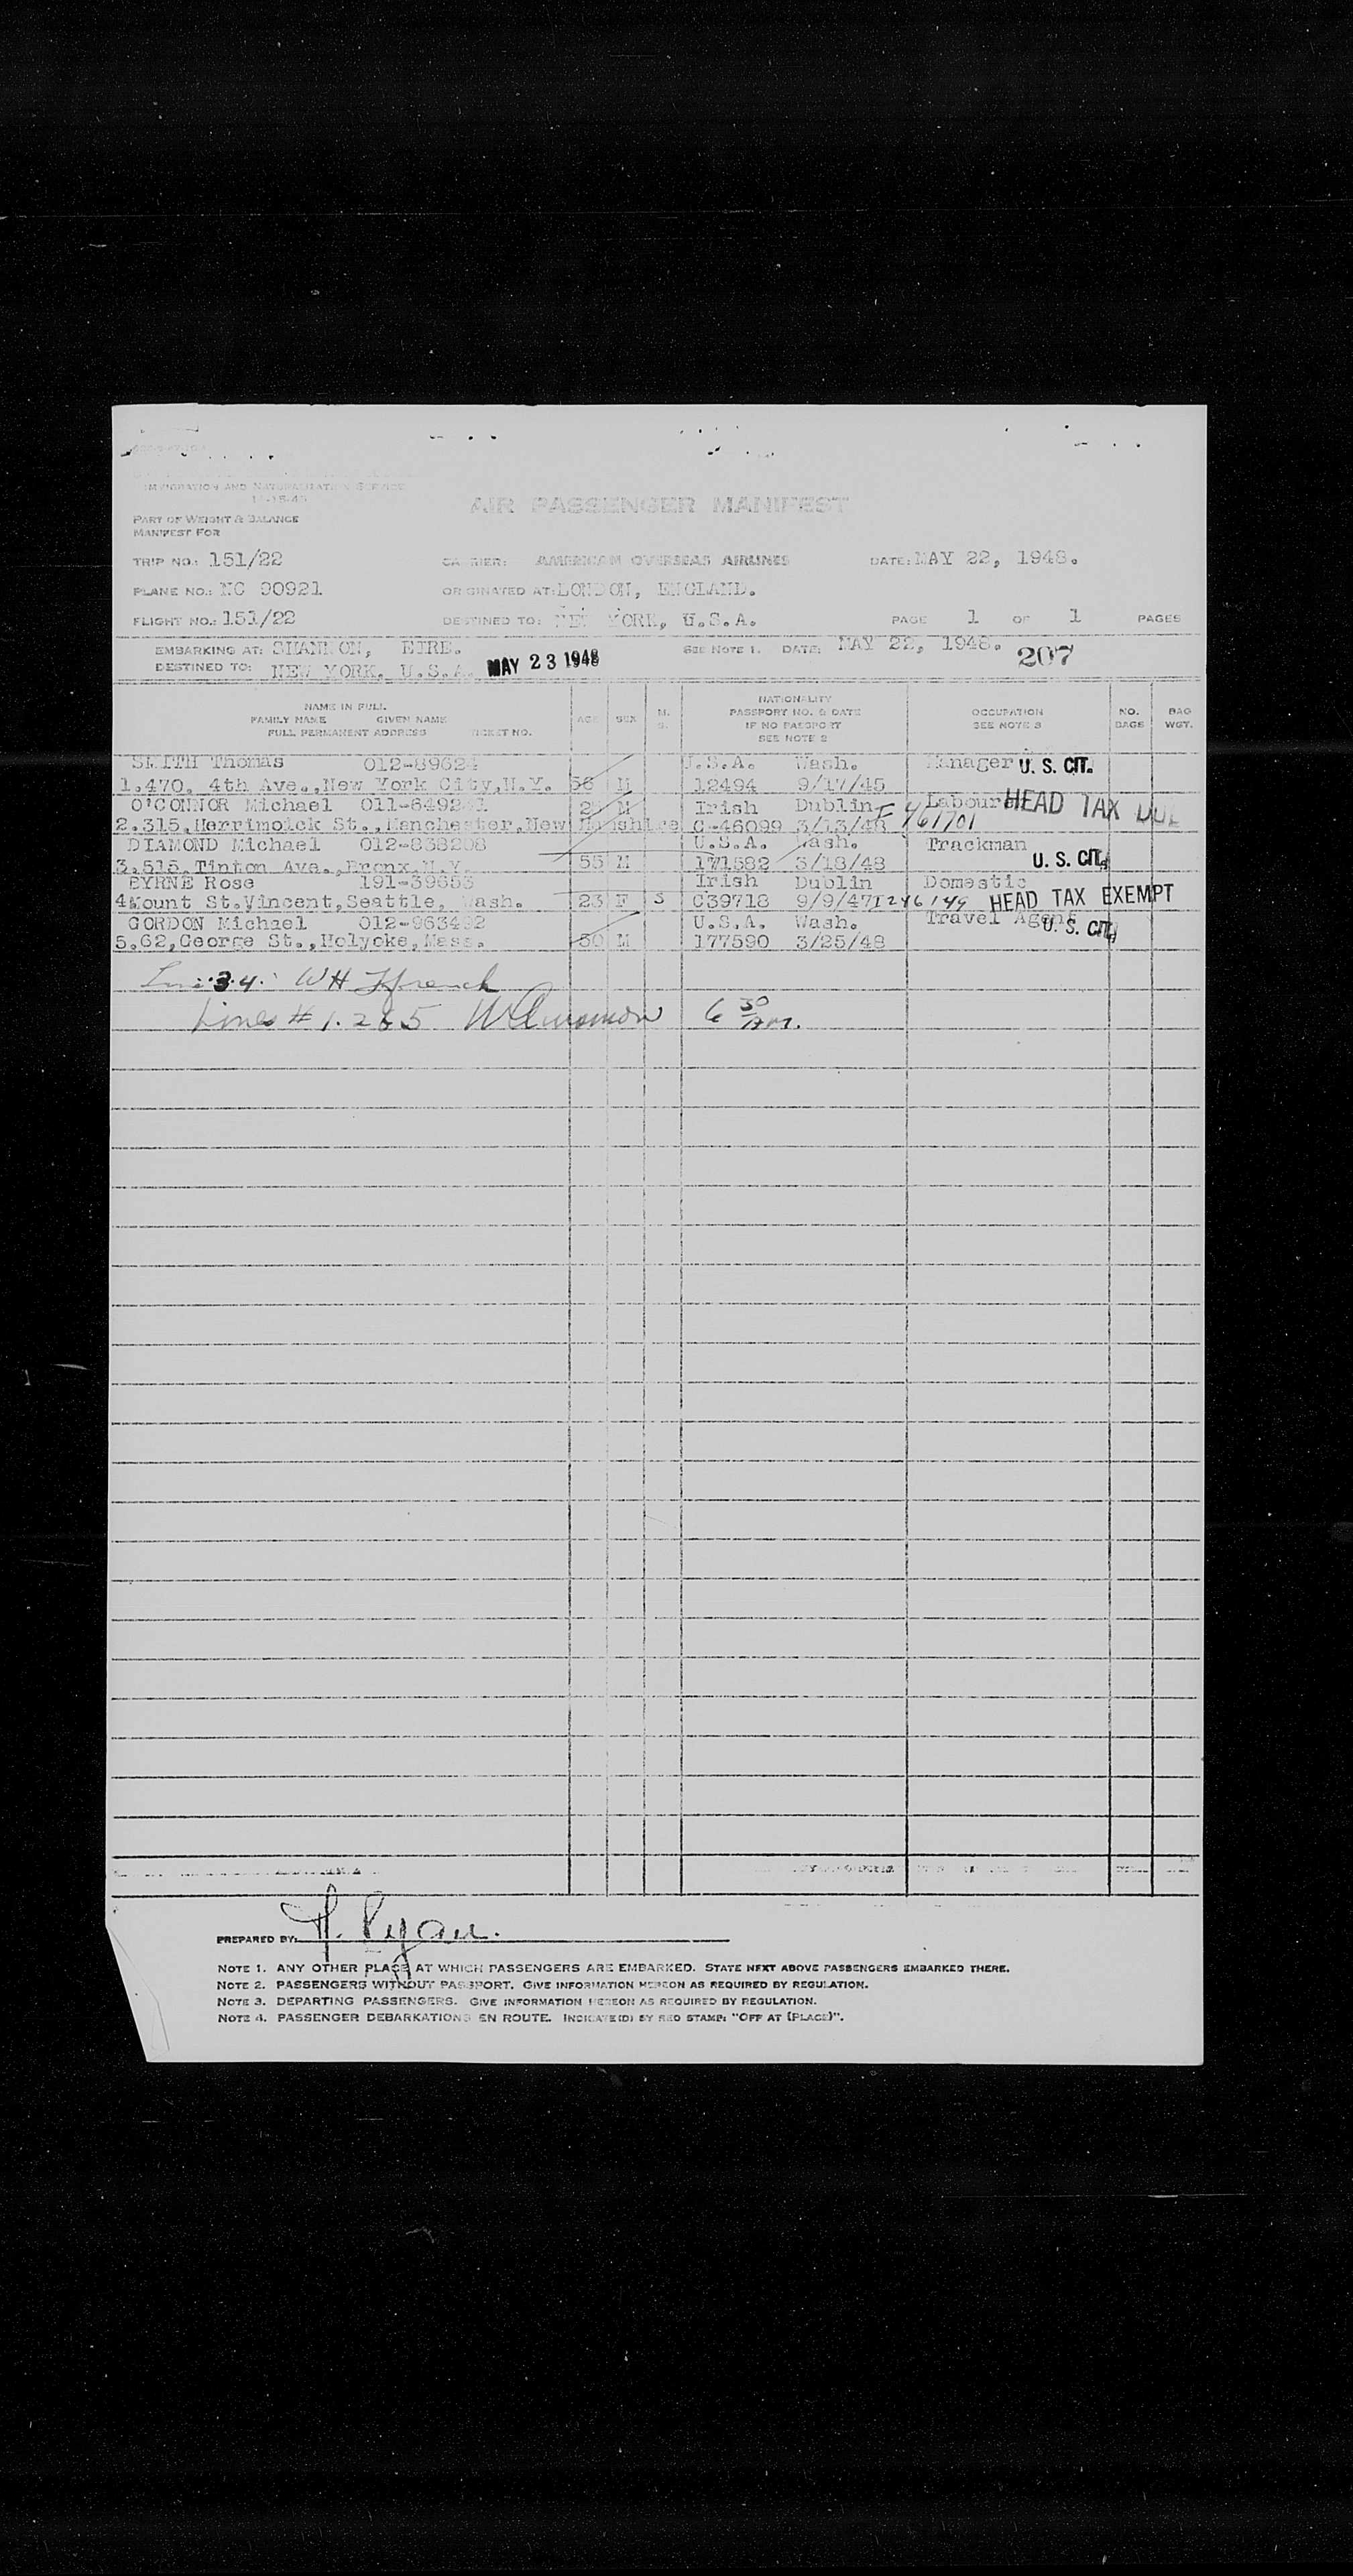 IMMIGRATION AND NATURALIZATION SERVICE
AIR PASSENGER MANIFEST
PART OF WEIGHT & BALANCE
MANIFEST FOR
TRIP NO.: 151/22 CARRIER: AMERICAN OVERSEAS AIRLINES DATE: MAY 22, 1948.
PLANE NO.: NC 90921 ORIGINATED AT: LONDON, ENGLAND.
FLIGHT NO.: 151/22 DESTINED TO: NEW YORK, U.S.A. PAGE 1 OF 1 PAGES
EMBARKING AT: SHANNON, EIRE. SEE NOTE 1. DATE: MAY 22, 1948. 207
DESTINED TO: NEW YORK, U.S.A. MAY 23 1948
NAME IN FULL
FAMILY NAME GIVEN NAME
FULL PERMANENT ADDRESS TICKET NO.
AGE SEX M. S.
NATIONALITY
PASSPORT NO. & DATE
IF NO PASSPORT
SEE NOTE 2
OCCUPATION
SEE NOTE 3
NO. BAGS
BAG WGT.
SMITH Thomas 012-89624 U.S.A. Wash. Manager U. S. CIT.
1.470, 4th Ave.,New York City,N.Y. 56 M 12494 9/17/45
O'CONNOR Michael M Irish Dublin Labourer HEAD TAX DUE
2.315,Merrimoick St.,Manchester,New Hampshire C-46099 3/13/48 F 461701
DIAMOND Michael 012-838208 U.S.A. Wash. Trackman
3.515,Tinton Ave.,Bronx,N.Y. 55 M 171582 3/18/48 U. S. CIT.
BYRNE Rose 191-39653 Irish Dublin Domestic
4Mount St.Vincent,Seattle, Wash. 23 F S C39718 9/9/47 I246149 HEAD TAX EXEMPT
GORDON Michael 012-963492 U.S.A. Wash. Travel Agent U. S. CIT.
5.62,George St.,Holyoke,Mass. 50 M 177590 3/25/48
3.4. W H
Lines # 1. 2 & 5 6 30 AM.
PREPARED BY: H. Ryan.
NOTE 1. ANY OTHER PLACE AT WHICH PASSENGERS ARE EMBARKED. STATE NEXT ABOVE PASSENGERS EMBARKED THERE.
NOTE 2. PASSENGERS WITHOUT PASSPORT. GIVE INFORMATION HEREON AS REQUIRED BY REGULATION.
NOTE 3. DEPARTING PASSENGERS. GIVE INFORMATION HEREON AS REQUIRED BY REGULATION.
NOTE 4. PASSENGER DEBARKATIONS EN ROUTE. INDICATE(D) BY RED STAMP: "OFF AT (PLACE)".